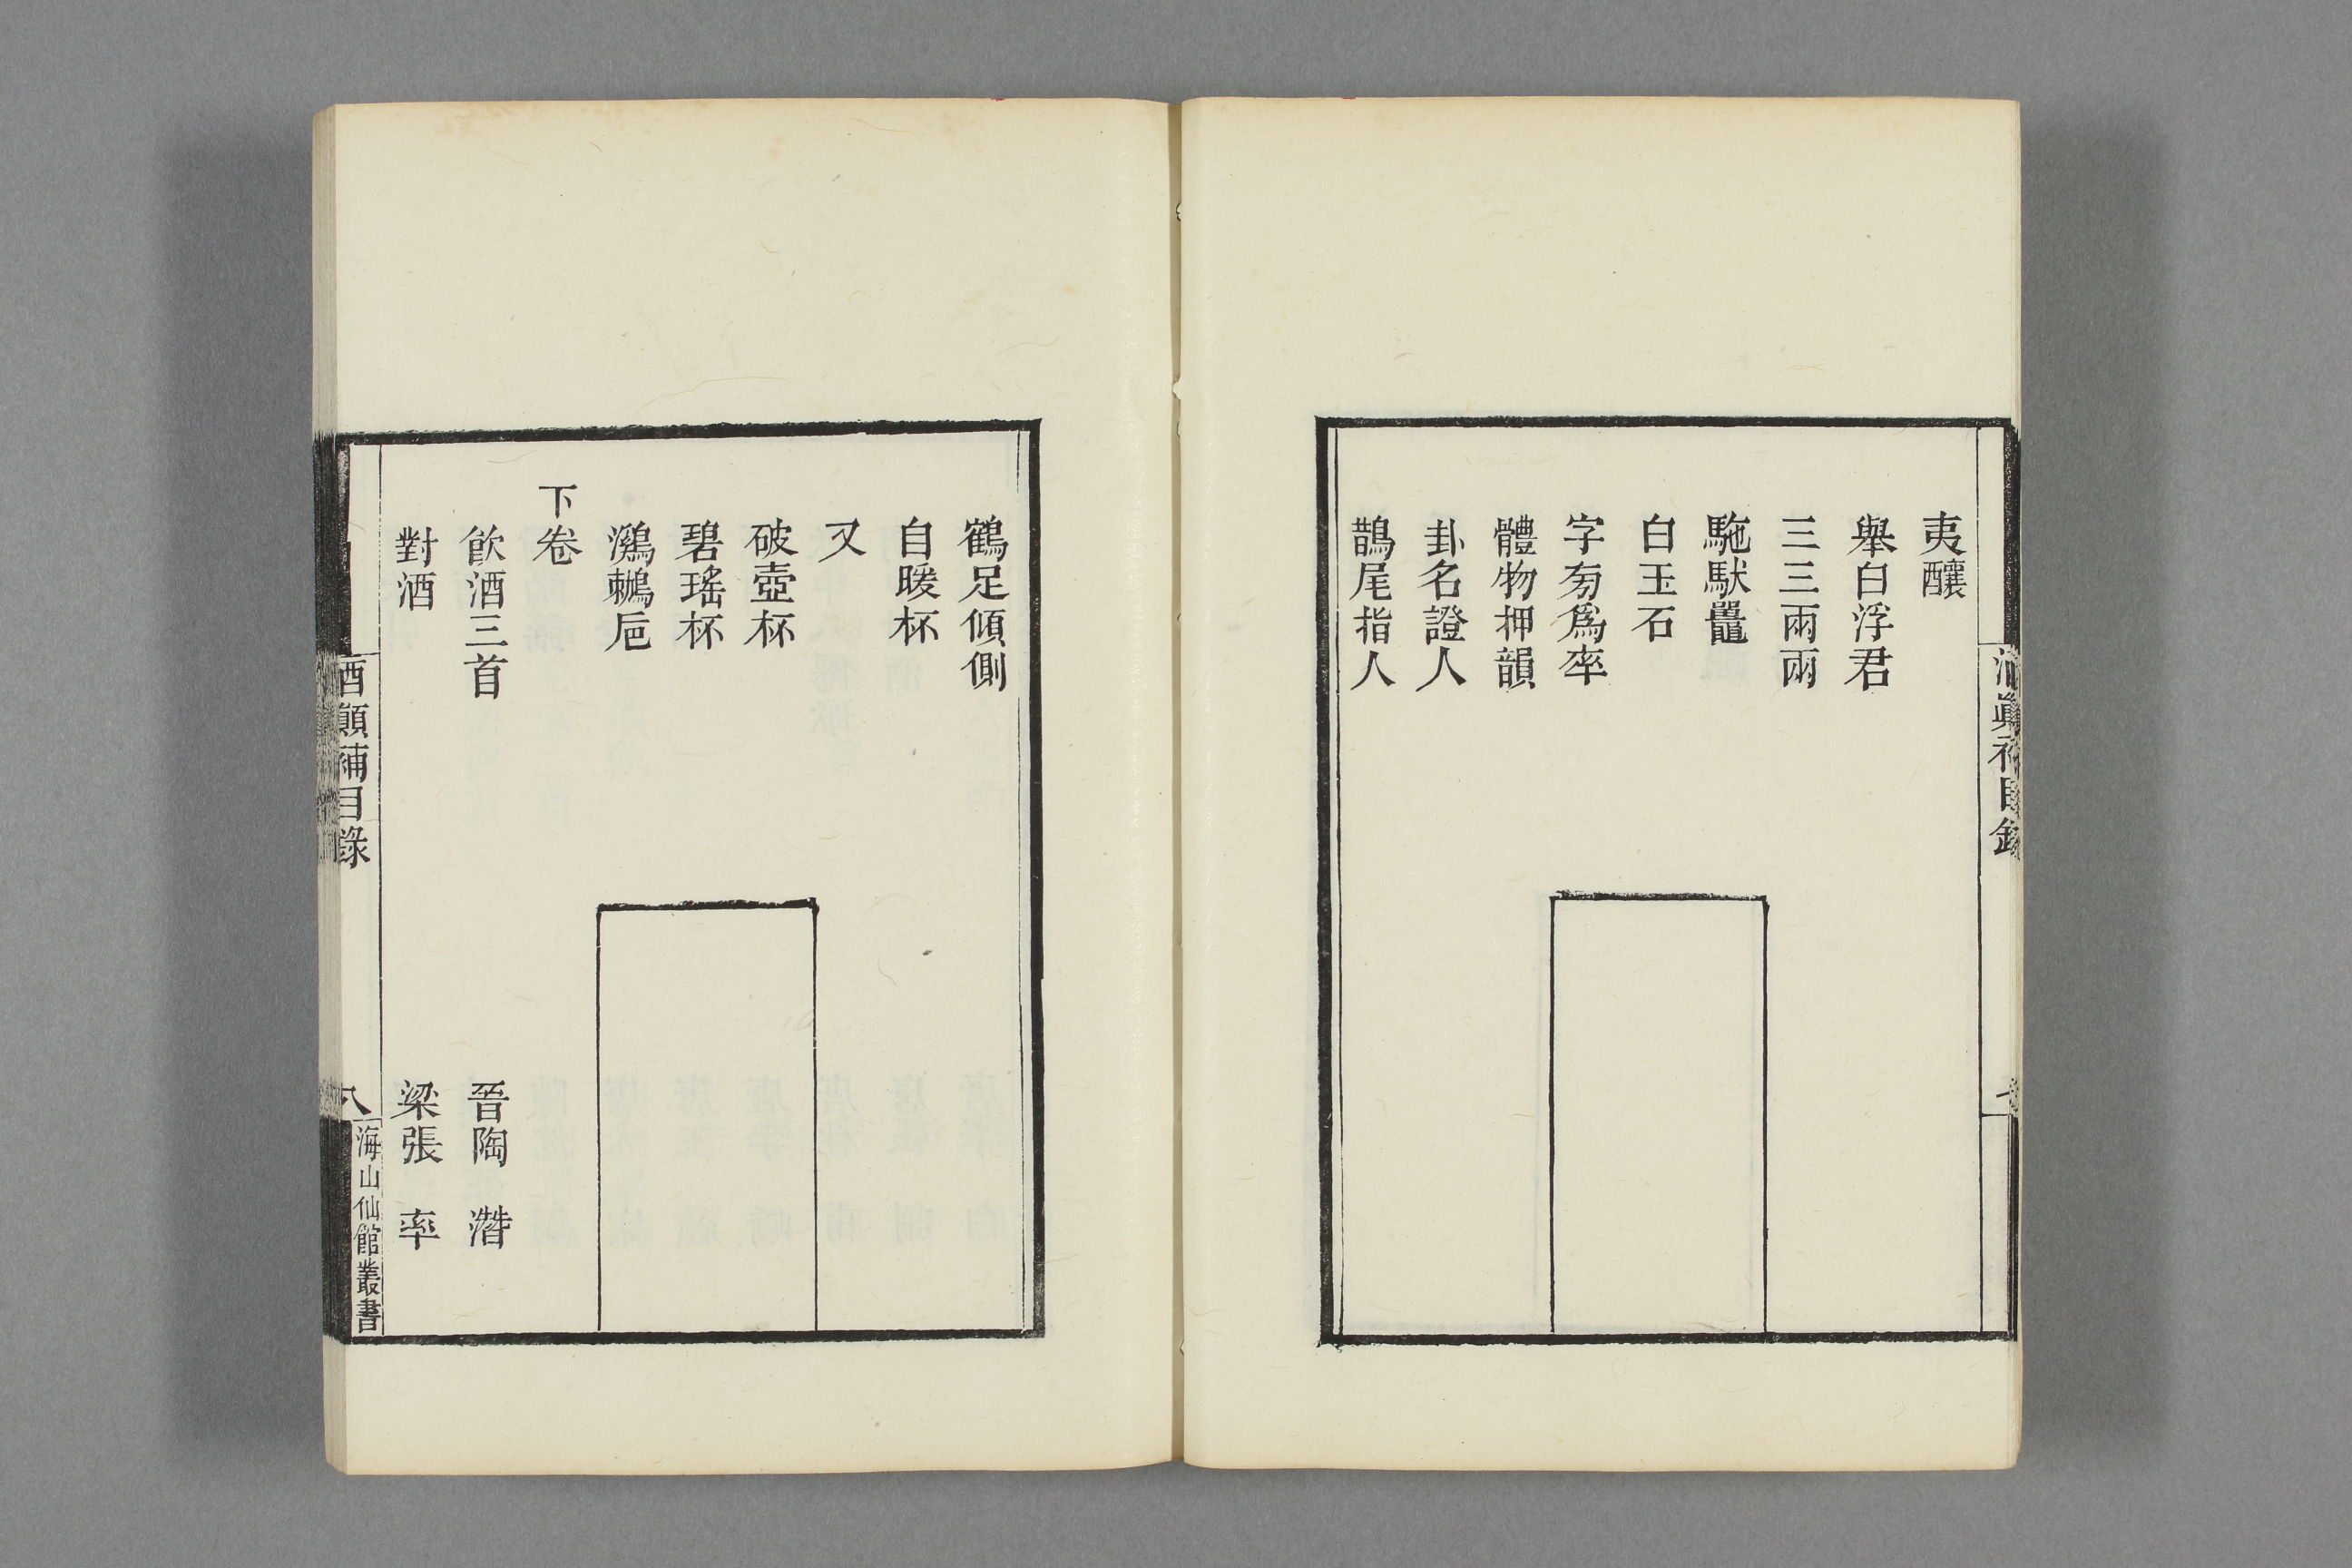 夷釀
舉白浮君
三三兩兩
駞馱鼉
白玉石
字旁爲率
體物押韻
卦名證人
鵲尾指人
鶴足傾側
自暖杯
又
破壺杯
碧瑤杯
鸂鶒巵
下卷
飮酒三首 晉陶 潛
對酒 梁張 率
酒顚補目錄 八 海山仙館叢書